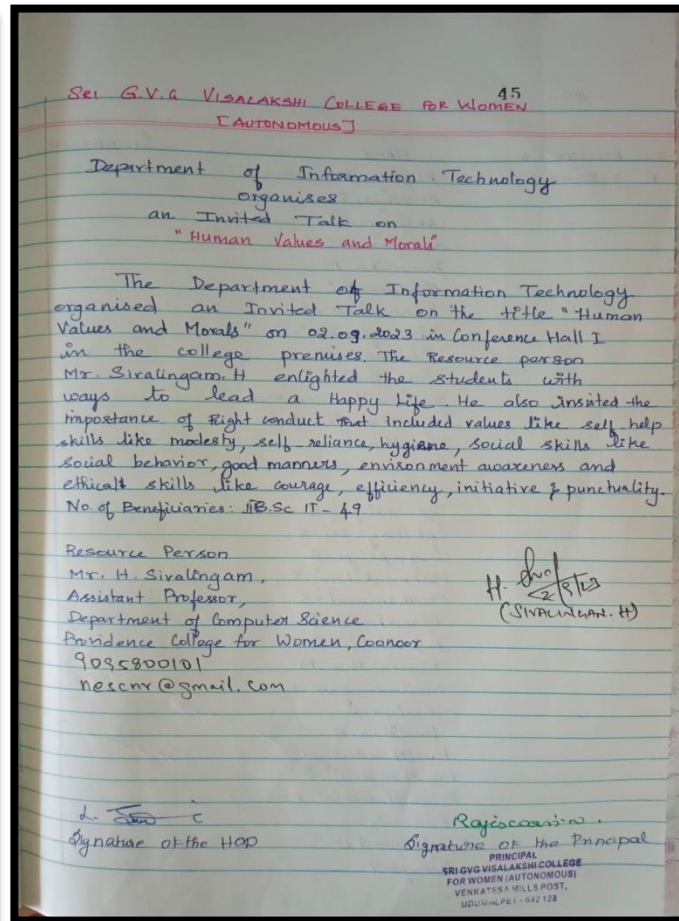 45
Sri G.V.G VISALAKSHI COLLEGE FOR WOMEN
[AUTONOMOUS]
Department of Information Technology
organises
an Invited Talk on
"Human Values and Morals"
The Department of Information Technology
organised an Invited Talk on the title "Human
Values and Morals" on 02.09.2023 in Conference Hall I
in the college premises. The Resource person
Mr. Sivalingam. H enlighted the students with
ways to lead a Happy Life. He also insisted the
importance of Right conduct that included values like self help
skills like modesty, self-reliance, hygiene, social skills like
social behavior, good manners, environment awareness and
ethical skills like courage, efficiency, initiative & punctuality.
No. of Beneficiaries: B.Sc IT - 49
Resource Person
Mr. H. Sivalingam,
Assistant Professor,
Department of Computer Science
Providence College for Women, Coonoor
9095800101
nescnr@gmail.com
H.
2/9/23
(SIVALINGAM. H)
L.
Signature of the HOD
Signature of the Principal
PRINCIPAL
SRI GVG VISALAKSHI COLLEGE
FOR WOMEN (AUTONOMOUS)
VENKATESA MILLS POST,
UDUMALPET - 642 128